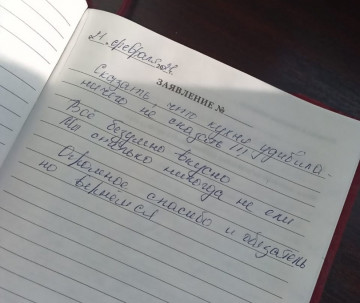 21. февраля 22г.
ЗАЯВЛЕНИЕ №
Сказать, что кухня удивила -
ничего не сказать!!!
Всё безумно вкусно
Мы столько никогда не ели
Огромное спасибо и обязатель
но вернемся